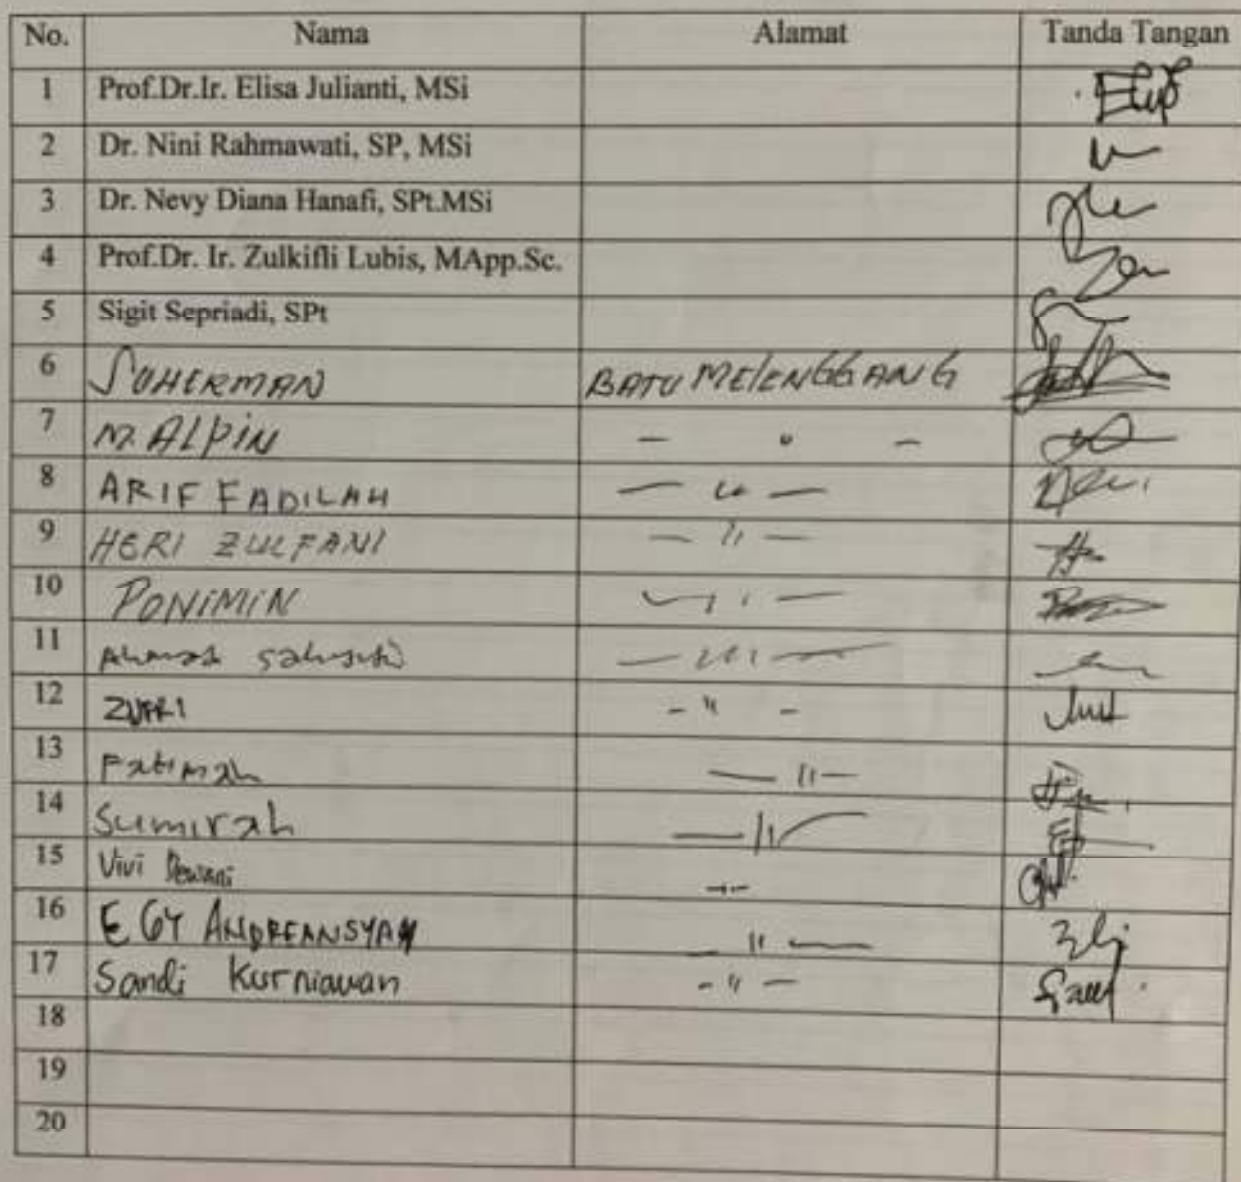 No. Nama Alamat Tanda Tangan
1 Prof.Dr.Ir. Elisa Julianti, MSi
2 Dr. Nini Rahmawati, SP, MSi
3 Dr. Nevy Diana Hanafi, SPt.MSi
4 Prof.Dr. Ir. Zulkifli Lubis, MApp.Sc.
5 Sigit Sepriadi, SPt
6 SUHERMAN BATU MELENGGANG
7 M. ALPiN
8 ARIF FADILAH
9 HERI ZULFANI - " -
10 PONiMiN
11
12 ZUFRI - " -
13 Fatimah - " -
14 Sumirah - " -
15 Vivi Dewani
16 EGY ANDREANSYAH - " -
17 Sandi Kurniawan - " -
18
19
20